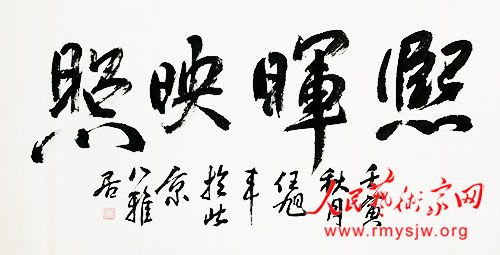 熙暉映照
壬寅
秋月
任旭
於北
京
八雅
居
人民藝術家网
www.rmysjw.org